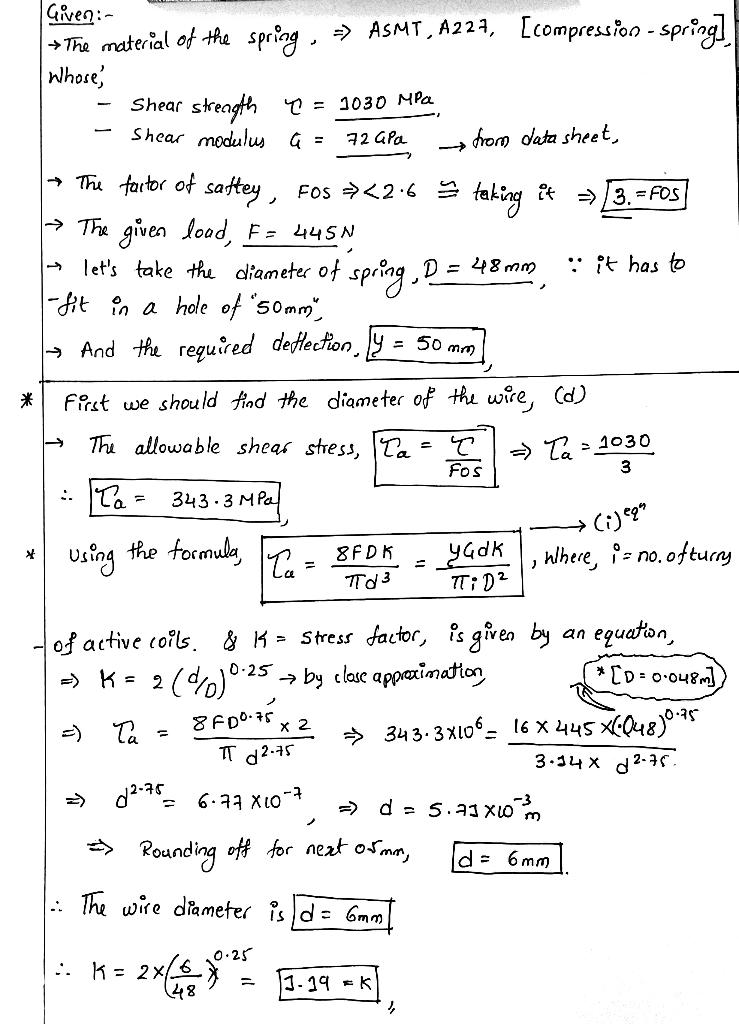 Given:-
→ The material of the spring, ⇒ ASMT, A227, [compression-spring],
Whose,
- Shear strength τ = 1030 MPa,
- Shear modulus G = 72 GPa → from data sheet,
→ The factor of saftey, FOS ⇒ < 2.6 ≅ taking it ⇒ 3. = FOS
→ The given load, F = 445 N,
→ let's take the diameter of spring, D = 48 mm, ∵ it has to
-fit in a hole of "50mm",
→ And the required deflection, y = 50 mm,
* First we should find the diameter of the wire, (d)
→ The allowable shear stress, τa = τ/FOS ⇒ τa = 1030/3
∴ τa = 343.3 MPa,
* Using the formula, τa = 8FDK/πd³ = yGdK/πiD² → (i) eqⁿ, where, i = no. of turns
- of active coils. & K = Stress factor, is given by an equation,
⇒ K = 2 (d/D)^0.25 → by close approximation, * [D = 0.048m]
⇒ τa = 8FD^0.75 × 2/π d^2.75 ⇒ 343.3×10⁶ = 16 × 445 × (.048)^0.75/3.14 × d^2.75.
⇒ d^2.75 = 6.77 ×10⁻⁷, ⇒ d = 5.71×10⁻³ m
⇒ Rounding off for next 0.5mm, d = 6mm.
∴ The wire diameter is d = 6mm
∴ K = 2×(6/48)^0.25 = 1.19 = K,,